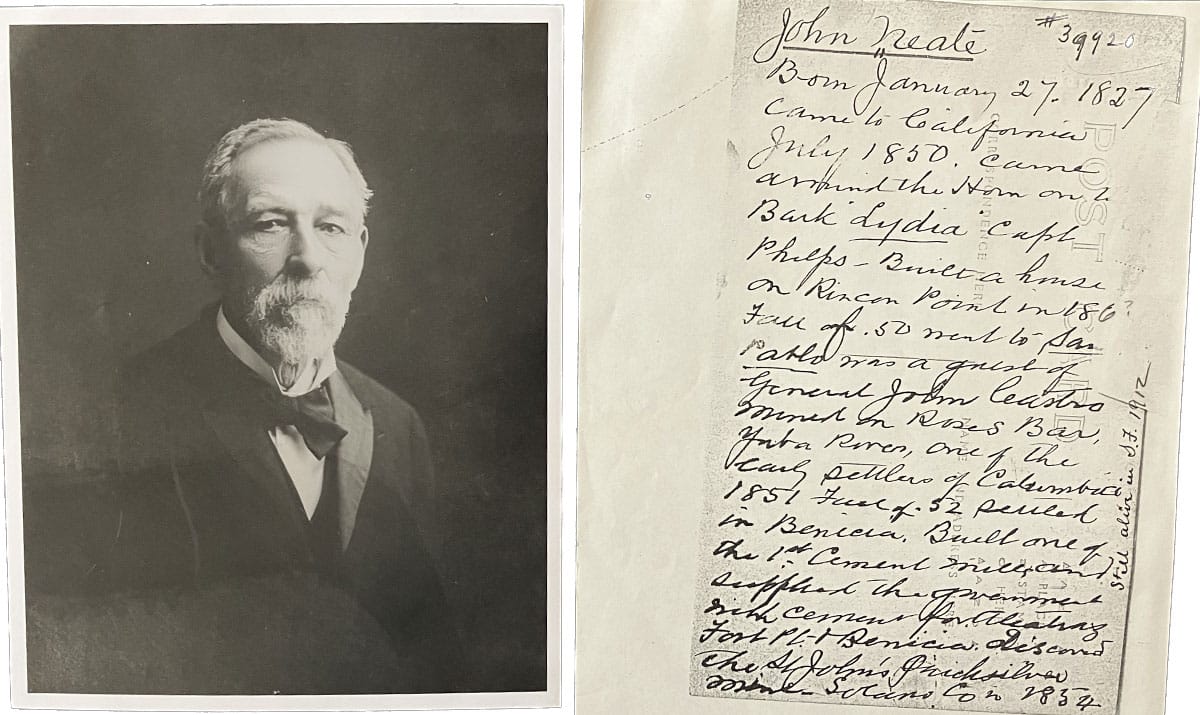 John Neate
#39920
Born January 27. 1827
came to California
July 1850. came
around the Horn on
Bark Lydia Capt
Phelps – Built a house
on Rincon Point in 186
Fall of .50 went to San
Pablo was a guest of
General John Castro
mined on Roses Bar,
Yuba River, one of the
early settlers of Columbia
1851 Fall of .52 settled
in Benicia. Built one of
the 1st Cement mills and
supplied the government
with cement for Alcatraz
Fort Pt. & Benicia. Discovered
the St John's Quicksilver
mine – Solano Co in 1854
Still alive in S.F. 1912
POST CARD
CORRESPONDENCE HERE
NAME AND ADDRESS